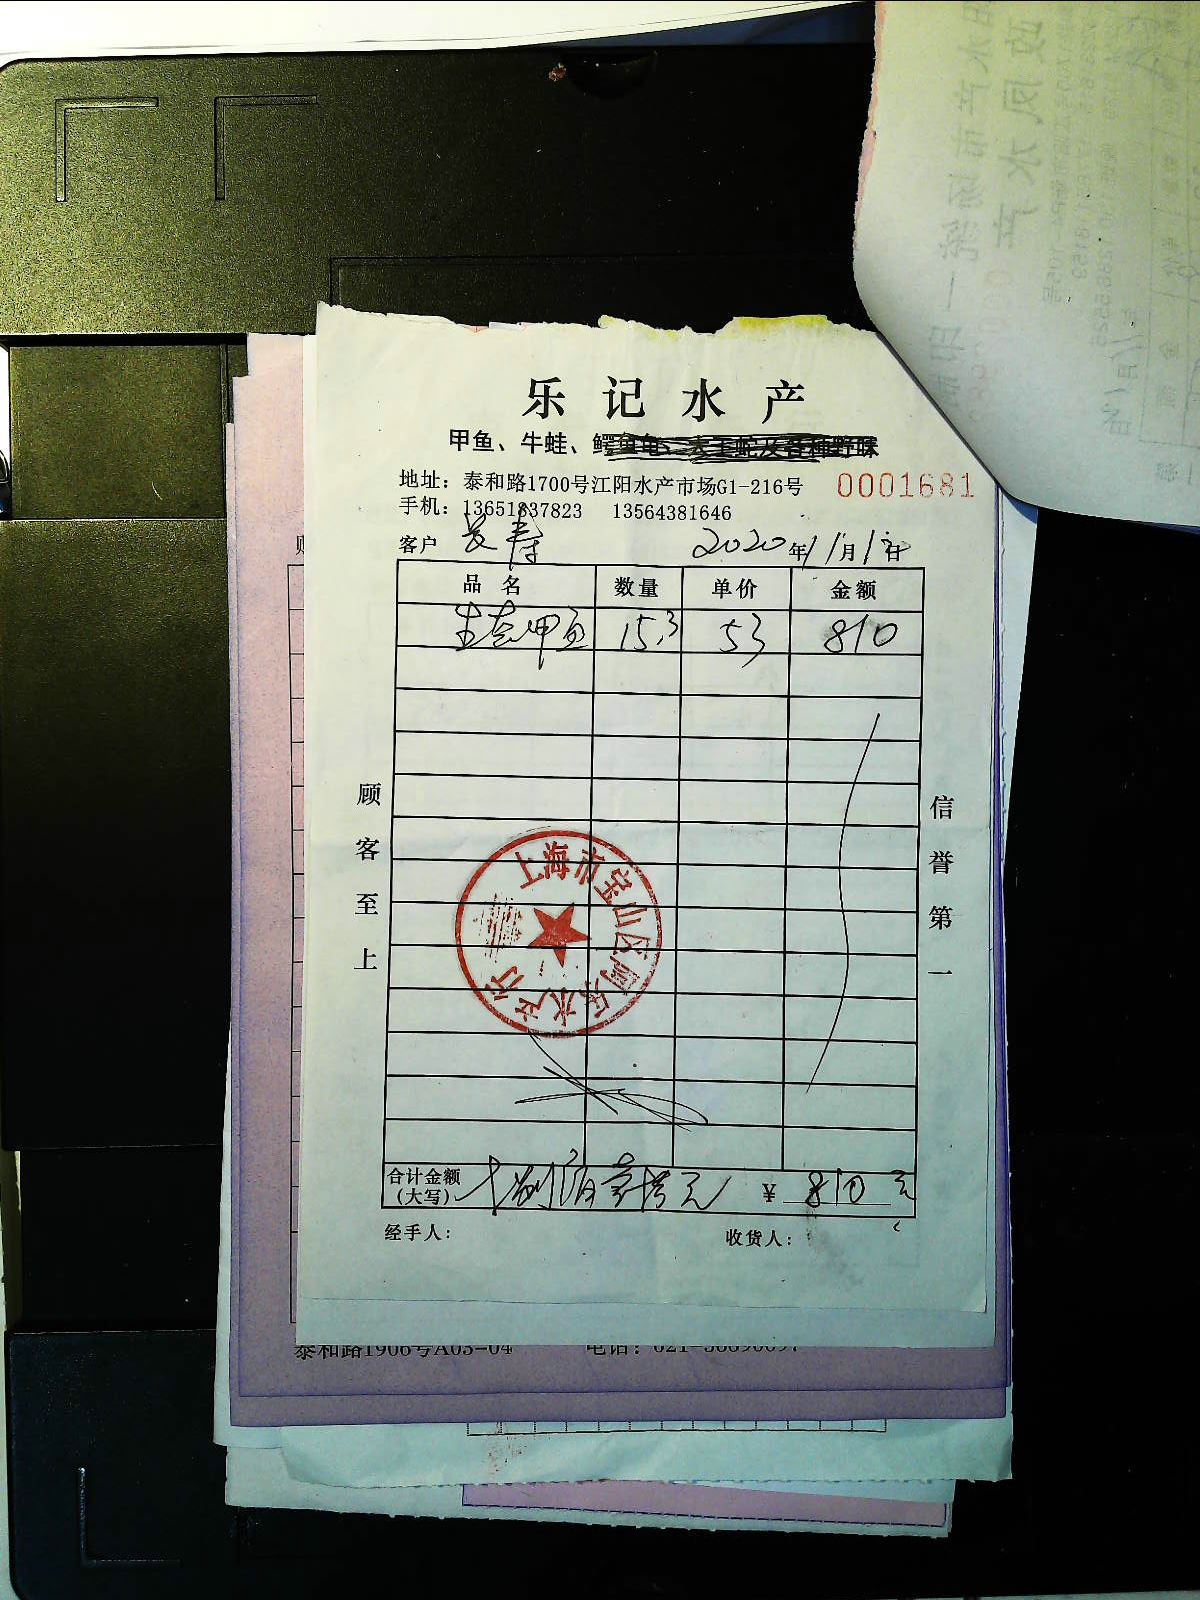 乐记水产
甲鱼、牛蛙、鳄鱼龟、大王蛇及各种野味
地址：泰和路1700号江阳水产市场G1-216号
0001681
手机：13651837823 13564381646
客户
2020年11月12日
品名 数量 单价 金额
生态甲鱼 15.3 53 810
顾客至上
信誉第一
上海市宝山区同乐水产行
合计金额 捌佰壹拾元 ¥810元
（大写）
经手人： 收货人：
泰和路1906号A03-04 电话：